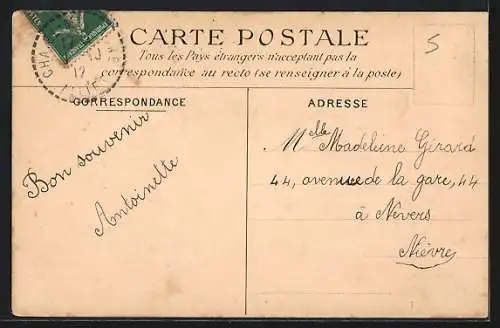 CARTE POSTALE
Tous les Pays étrangers n'acceptant pas la
correspondance au recto (se renseigner à la poste)
5
CORRESPONDANCE
Bon souvenir
Antoinette
ADRESSE
Mlle Madeleine Girard
44, avenue de la gare, 44
à Nevers
Nièvre